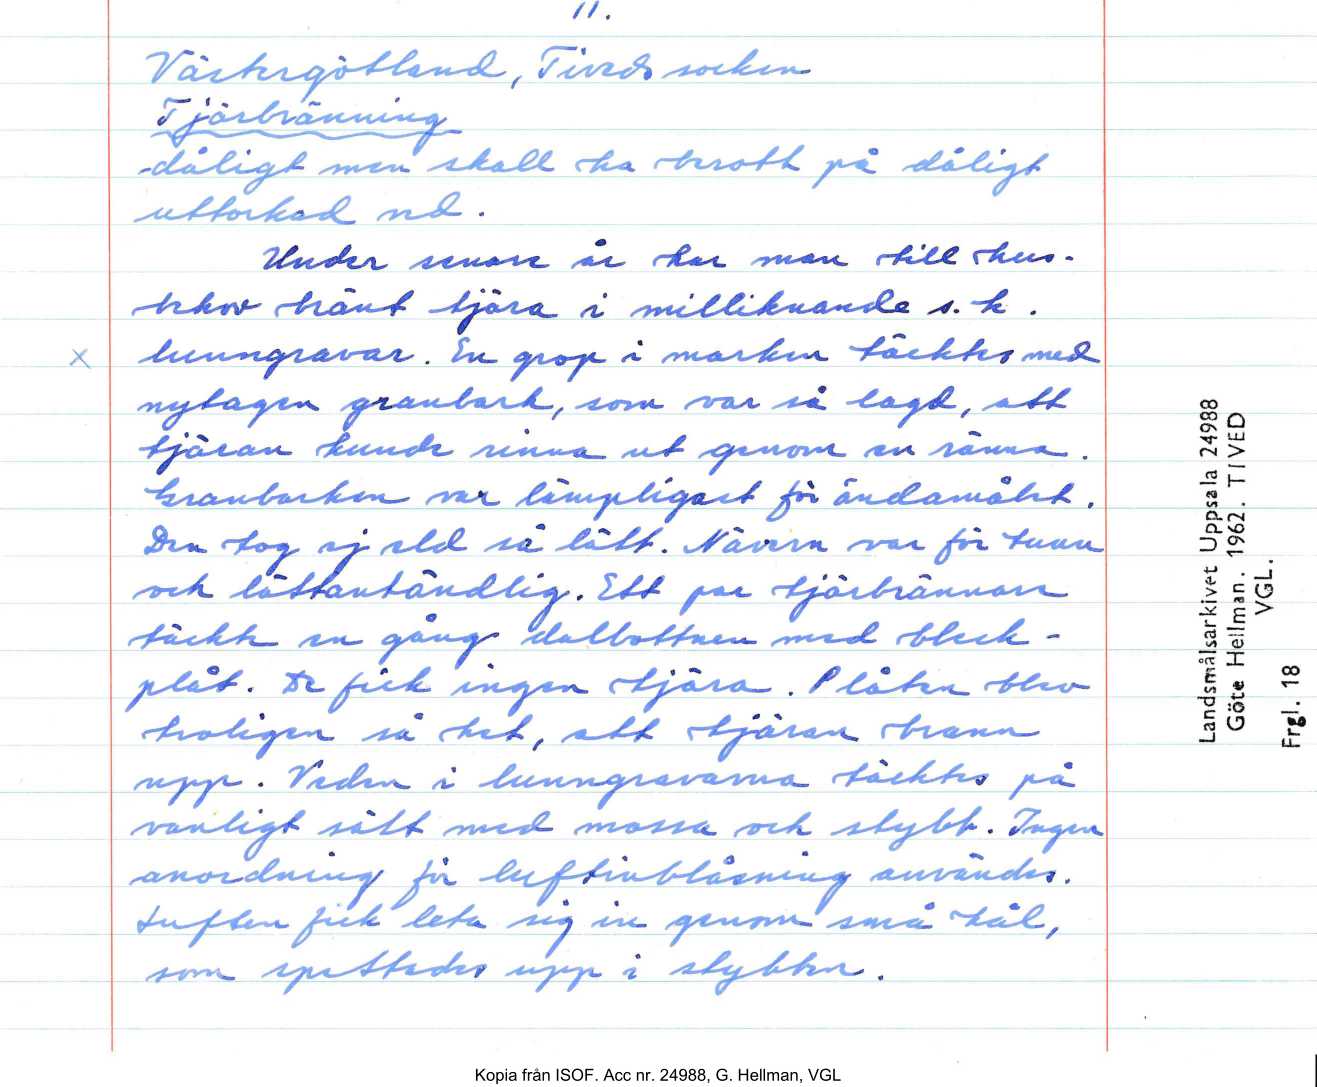 11.
Västergötland, Tiveds socken
Tjärbränning
dåligt men skall ha berott på dåligt
uttorkad ved.
Under senare år har man till hus-
behov bränt tjära i milliknande s.k.
lunngravar. En grop i marken täcktes med
nytagen granbark, som var så lagd, att
tjäran kunde rinna ut genom en ränna.
Granbarken var lämpligast för ändamålet.
Den tog ej eld så lätt. Nävern var för tunn
och lättantändlig. Ett par tjärbrännare
täckte en gång dalbottnen med bleck-
plåt. De fick ingen tjära. Plåten blev
troligen så het, att tjäran brann
upp. Veden i lunngravarna täcktes på
vanligt sätt med mossa och stybb. Ingen
anordning för luftinblåsning användes.
Luften fick leta sig in genom små hål,
som spettades upp i stybben.
Landsmålsarkivet Uppsala 24988
Göte Hellman. 1962. TIVED
VGL.
Frgl. 18
Kopia från ISOF. Acc nr. 24988, G. Hellman, VGL